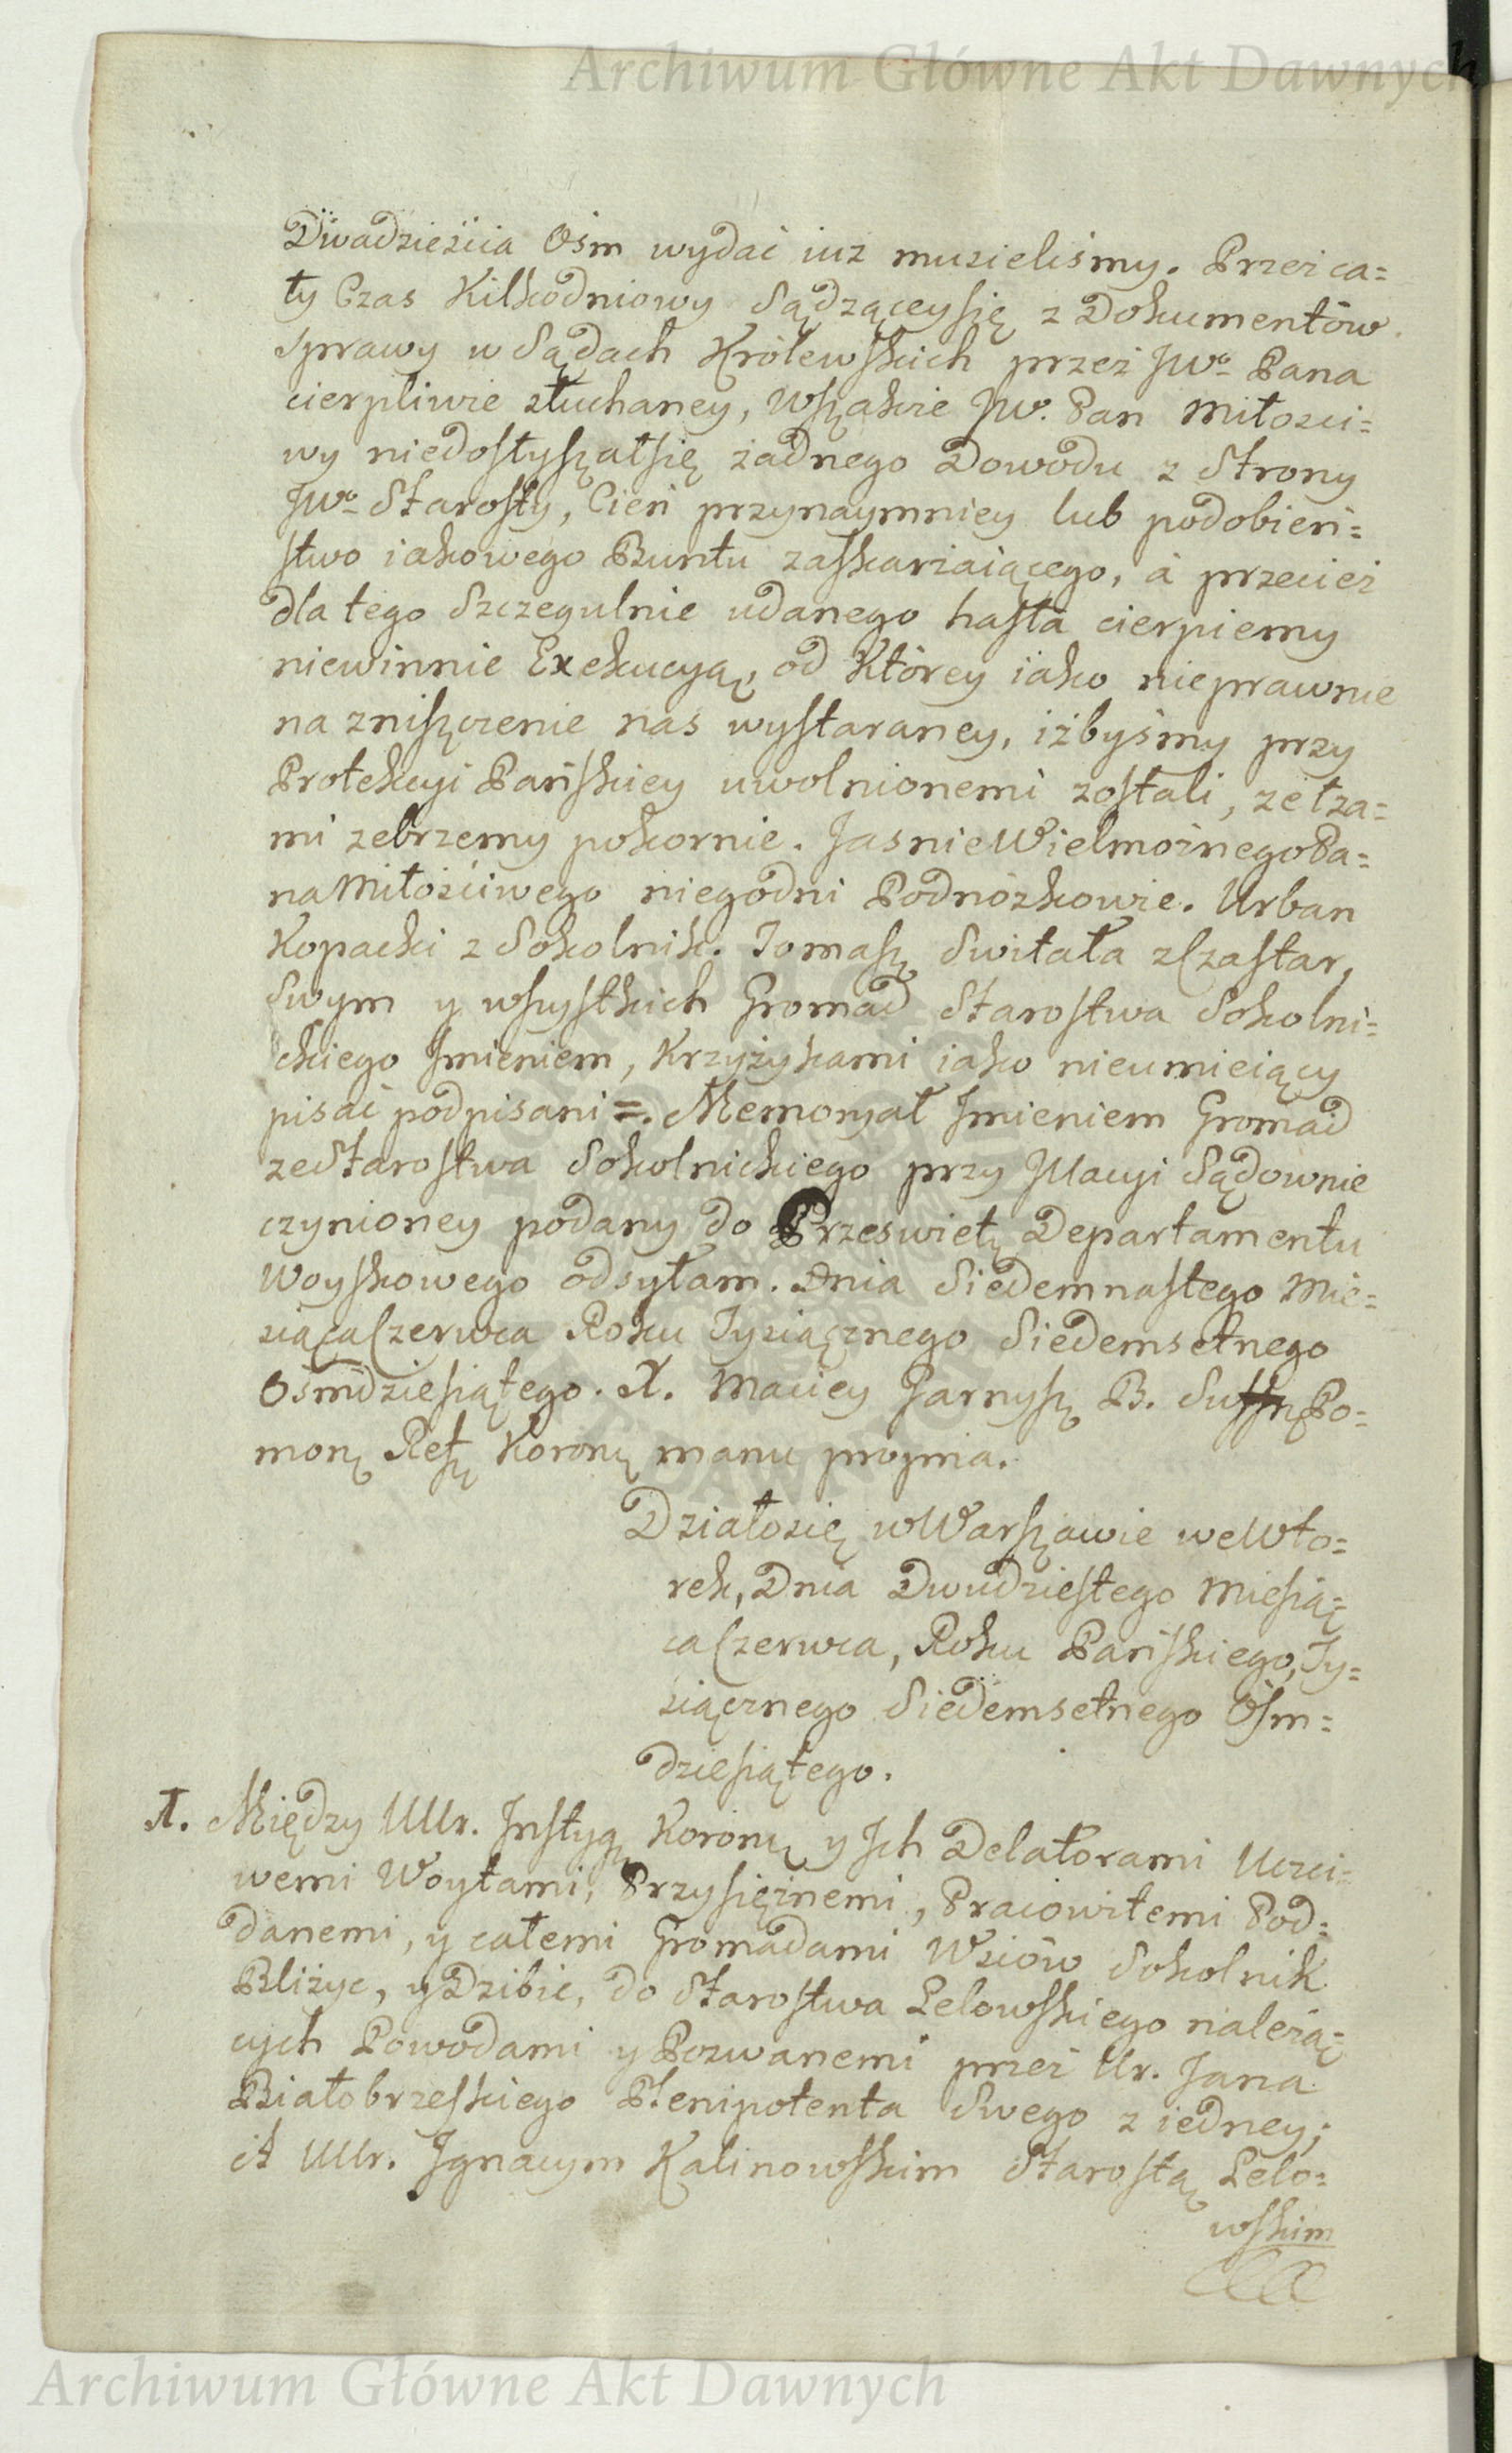 Archiwum Główne Akt Dawnych
Dwadzieścia Ośm wydać iuż musieliśmy. Przez ca=
ły Czas Kilkodniowy Sądzącey się z Dokumentów
Sprawy w Sądach Królewskich przez JWo Pana
cierpliwie słuchaney, Wszakże JW. Pan Miłości=
wy niedosłyszał się żadnego Dowodu z Strony
JWo Starosty, Cień przynaymniey lub podobień=
stwo iakowego Buntu zaskarżaiącego, a przecież
dla tego Szczegulnie udanego hasła cierpiemy
niewinnie Exekucyą, od Którey iako nieprawnie
na zniszczenie nas wystaraney, iżbyśmy przy
Protekcyi Pańskiey uwolnionemi zostali, ze łza=
mi żebrzemy pokornie. Jaśnie Wielmożnego Pa=
na Miłościwego niegodni Podnóżkowie. Urban
Kopacki z Sokolnik. Tomasz Switała z Czastar,
Swym y wszystkich Gromad Starostwa Sokolni=
ckiego Jmieniem, Krzyżykami iako nieumieiący
pisać podpisani =. Memoryał Jmieniem Gromad
ze Starostwa Sokolnickiego przy Jllacyi Sądownie
czynioney podany do Prześwietę Departamentu
Woyskowego odsyłam. Dnia Siedemnastego Mie=
siąca Czerwca Roku Tysiącznego Siedemsetnego
Ośmdziesiątego. X. Maciey Garnysz B. Po=
monę Refę Koronę manu propria.
Działo się w Warszawie we Wto=
rek, Dnia Dwudziestego Miesią=
ca Czerwca, Roku Pańskiego, Ty=
siącznego Siedemsetnego Ośm=
dziesiątego.
A. Między UUr. Jnstygę Koronę y Jch Delatorami Uczci=
wemi Woytami, Przysiężnemi, Pracowitemi Pod=
danemi, y całemi Gromadami Wsiów Sokolnik
Bliżyc, y Dzibic, do Starostwa Lelowskiego należą=
cych Powodami y Pozwanemi przez Ur. Jana
Białobrzeskiego Plenipotenta Swego z iedney;
A UUr. Jgnacym Kalinowskim Starostą Lelo=
wskim
Archiwum Główne Akt Dawnych